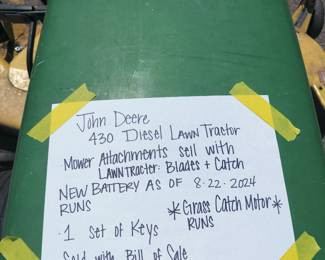 John Deere
430 Diesel Lawn Tractor
Mower Attachments sell with
Lawn Tracter: Blades + Catch
New Battery as of 8.22.2024
Runs
*Grass Catch Motor*
Runs
·1 Set of Keys
Sold with Bill of Sale